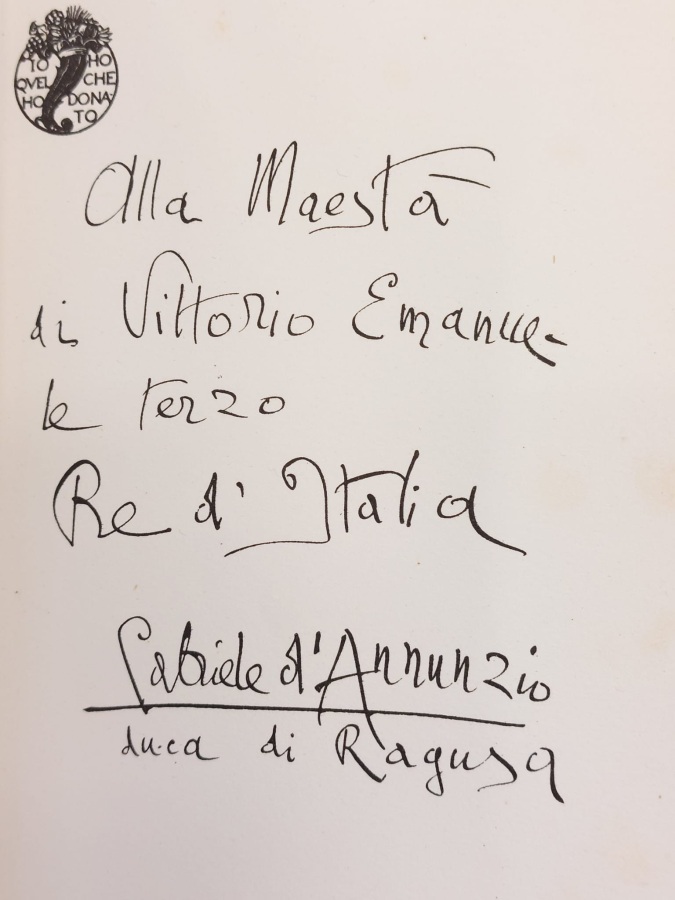 IO HO
QVEL CHE
HO DONA-
TO
Alla Maestà
di Vittorio Emanue-
le terzo
Re d'Italia
Gabriele d'Annunzio
duca di Ragusa